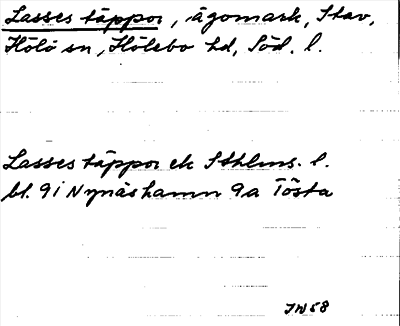 Lasses täppor, ägomark, Stav,
Hölö sn, Hölebo hd, Söd. l.
Lasses täppor ek Sthlms. l.
bl. 9i Nynäshamn 9a Tösta
JW58